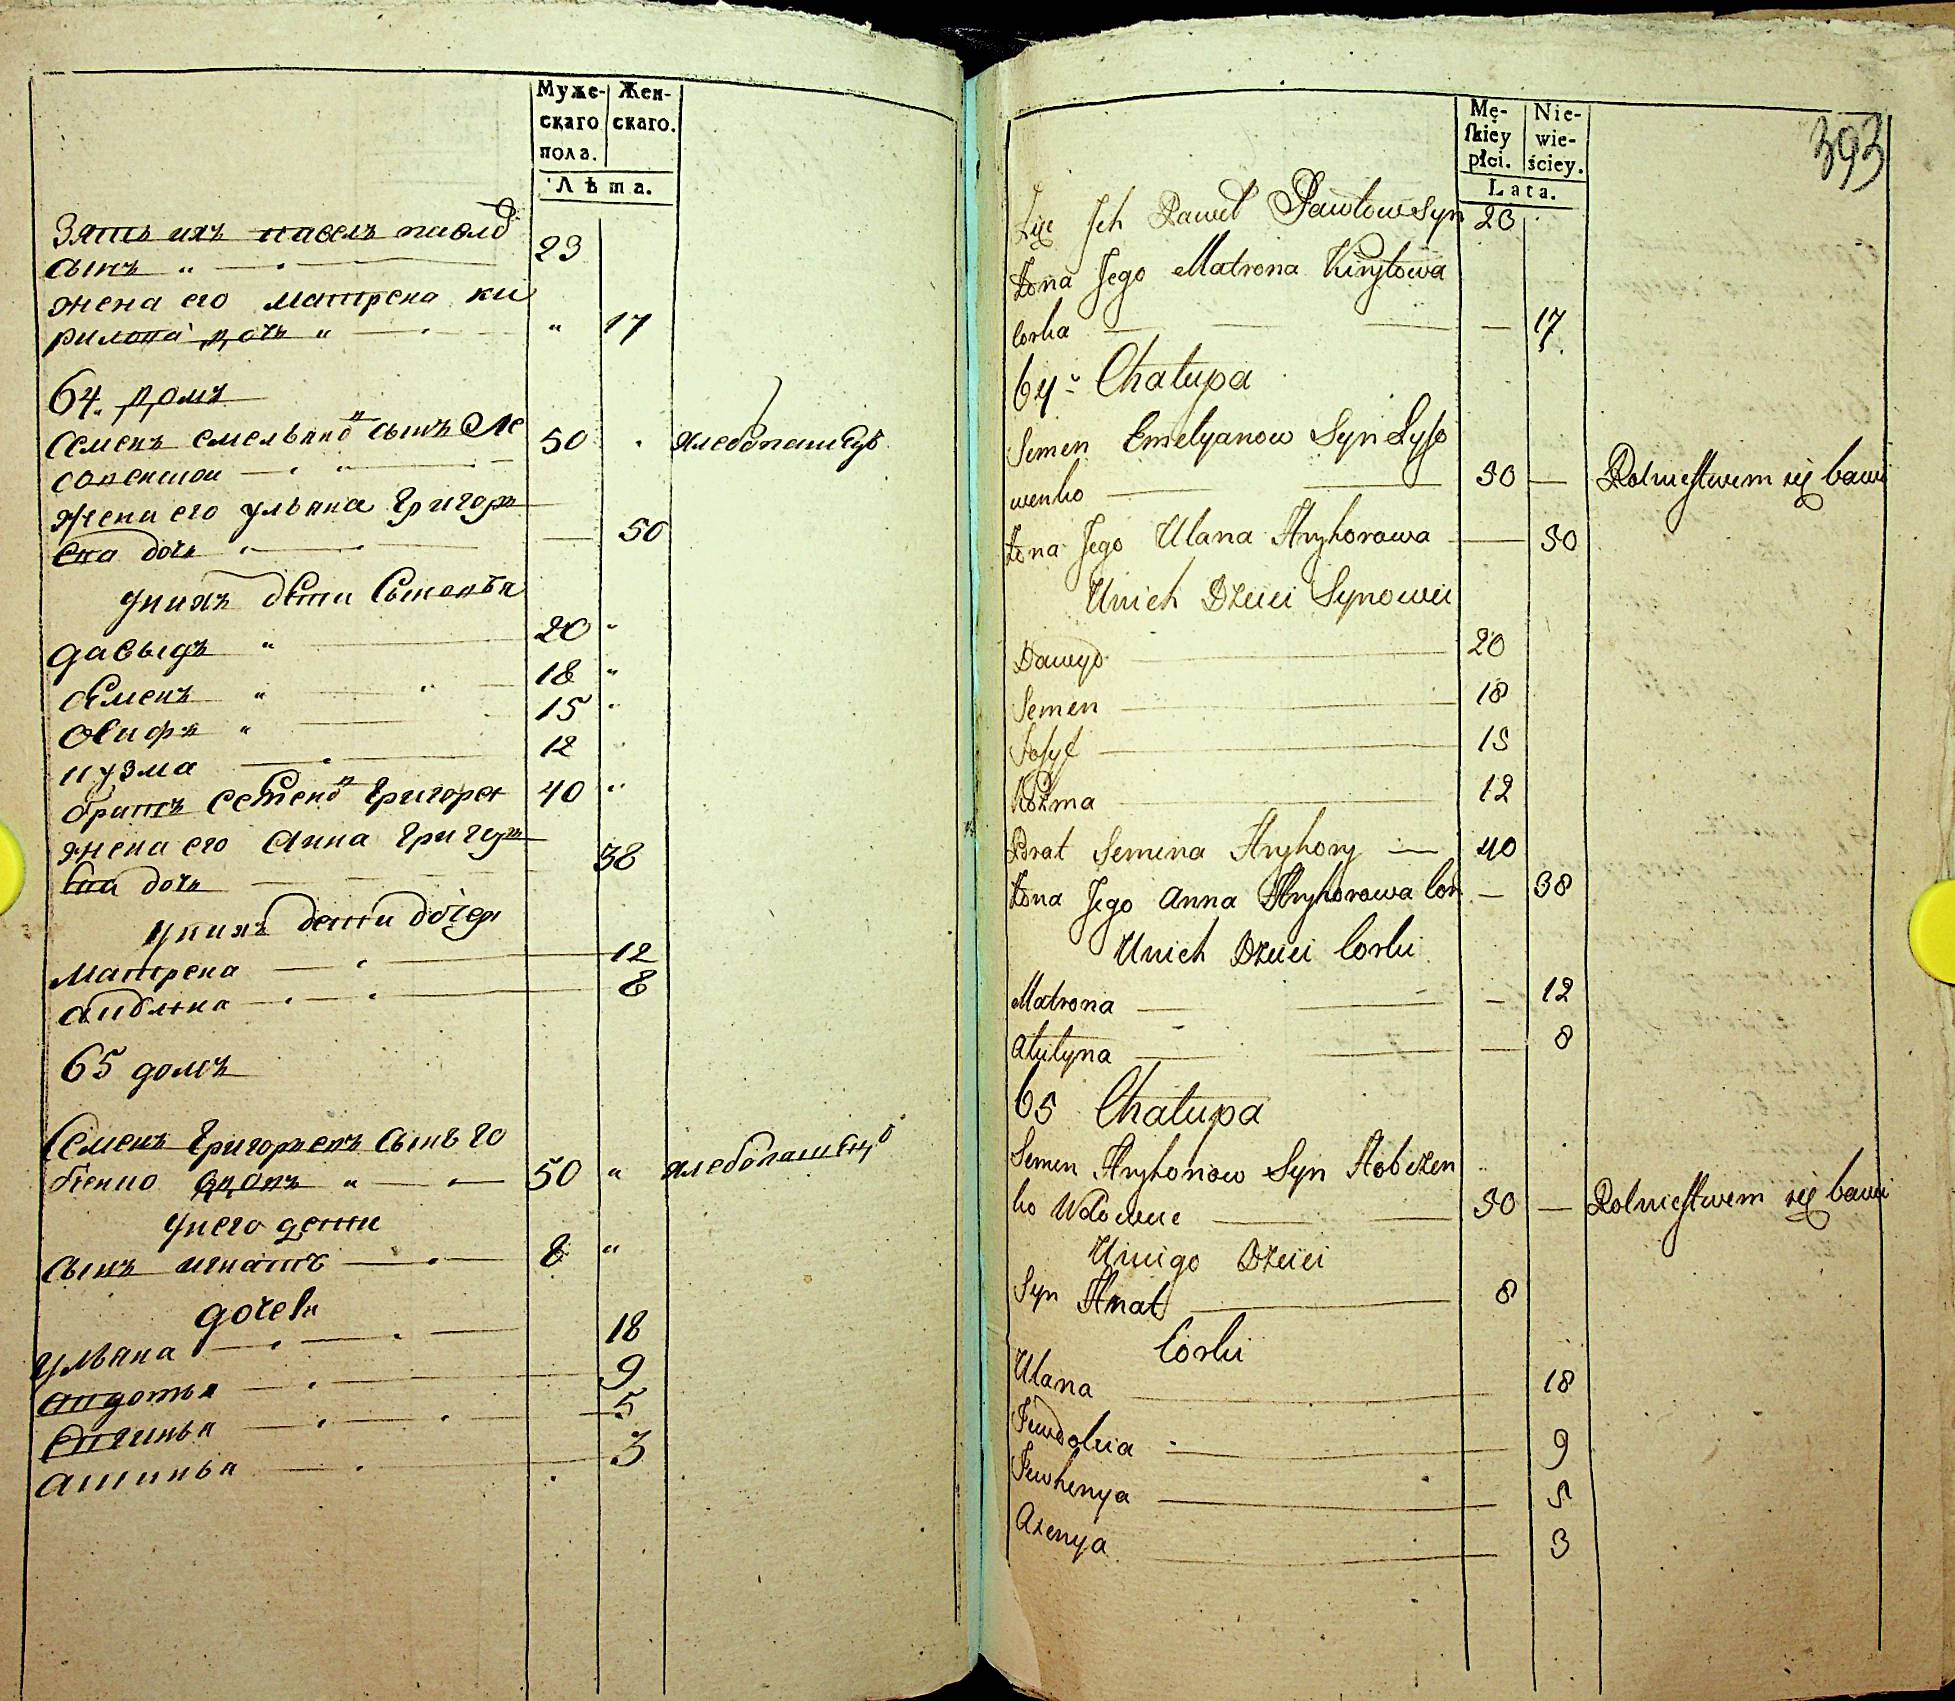 Муже-
скаго
пола.
Жен-
скаго.
Лѣта.
Зять ихъ павелъ павлов
сынъ " 23
жена его матрена ки
рилова дочь " " 17
64. домъ
Семенъ емельяновъ сынъ Ле
50 хлебопашецъ
жена его ульяна Григорь
ева дочь 50
унихъ дети Сыновья
давыдъ " 20 "
Семенъ " 18 "
Осифъ " 15 "
кузма 12
братъ Семеновъ Григорей 40 "
жена его Анна Григорь
ева дочь 38
унихъ дети дочери
матрена 12
акулина 8
65 домъ
Семенъ Григорьевъ Сынъ Го
бженко вдовъ " 50 " хлебопашецъ
унего дети
сынъ игнатъ 8 "
дочери
ульяна 18
авдотья 9
Евгинья 5
аксинья 3
393
Mę-
skiey
płci.
Nie-
wie-
ściey.
Lata.
Zięć Jch Paweł Pawłow Syn 23
Żona Jego Matrona Kiryłowa
Corka — 17
64 Chałupa
Semen Emelyanow Syn Łyso
wenko 50 — Rolnictwem się bawi
Żona Jego Ulana Hryhorowa — 50
Unich Dzieci Synowie
Dawyd 20
Semen 18
Josyf 15
Kozma 12
Brat Semena Hryhory 40
Żona Jego Anna Hryhorowa Cor — 38
Unich Dzieci Corki
Matrona — 12
Akulyna — 8
65 Chałupa
Semen Hryhorow Syn Hobżen
ko Wdowiec 50 — Rolnictwem się bawi
Uniego Dzieci
Syn Hnat 8
Corki
Ulana 18
Jewdokia 9
Jewhenya 5
Axenya 3